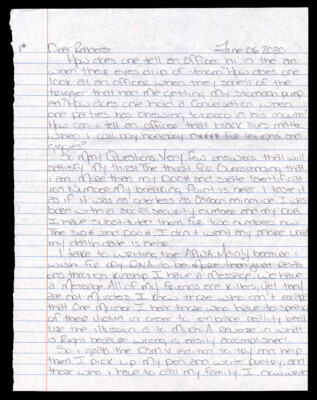 Dear Rebecca June 06, 2020
How does one tell an officer hi in the am
when their eyes drip of venom? How does one
look at an officer when they smell of the
trigger that had me getting my stomach pump
ed? How does one hold a conversation when
one parties has chewing tobacco in his mouth?
How can I tell an officer that black lives matter
when I call my homeboy for laughs and
giggles?
So many questions. Very few answers that will
satisfy my thirst. The thirst for overstanding that
I am more than my DOC# and State Identificat
ion Number. My breaking point is near. I taste it
as if it was as oderless as carbon monoxide. I was
born with a social security number and my DOB.
I have substituted them for two numbers now
The SID# and DOC#. I don't want any more until
my death date is near.
I take to writing the APWA mainly because I
wish for my DNA to be more than just death
and tharion kinship. I have a message. We have
a message. All of my friends are killers, yet they
are not murders. I know those who can't escape
that one murder. I hear those who have to speak
of their victim in order to embrace reality beca
use the illusion is to much. A reverse in what
is right because wrong is easily accomplished.
So I grab the DSM V edition to try and help
them. I pick up my pen and write poetry, and
those who I have to call my family. I now write